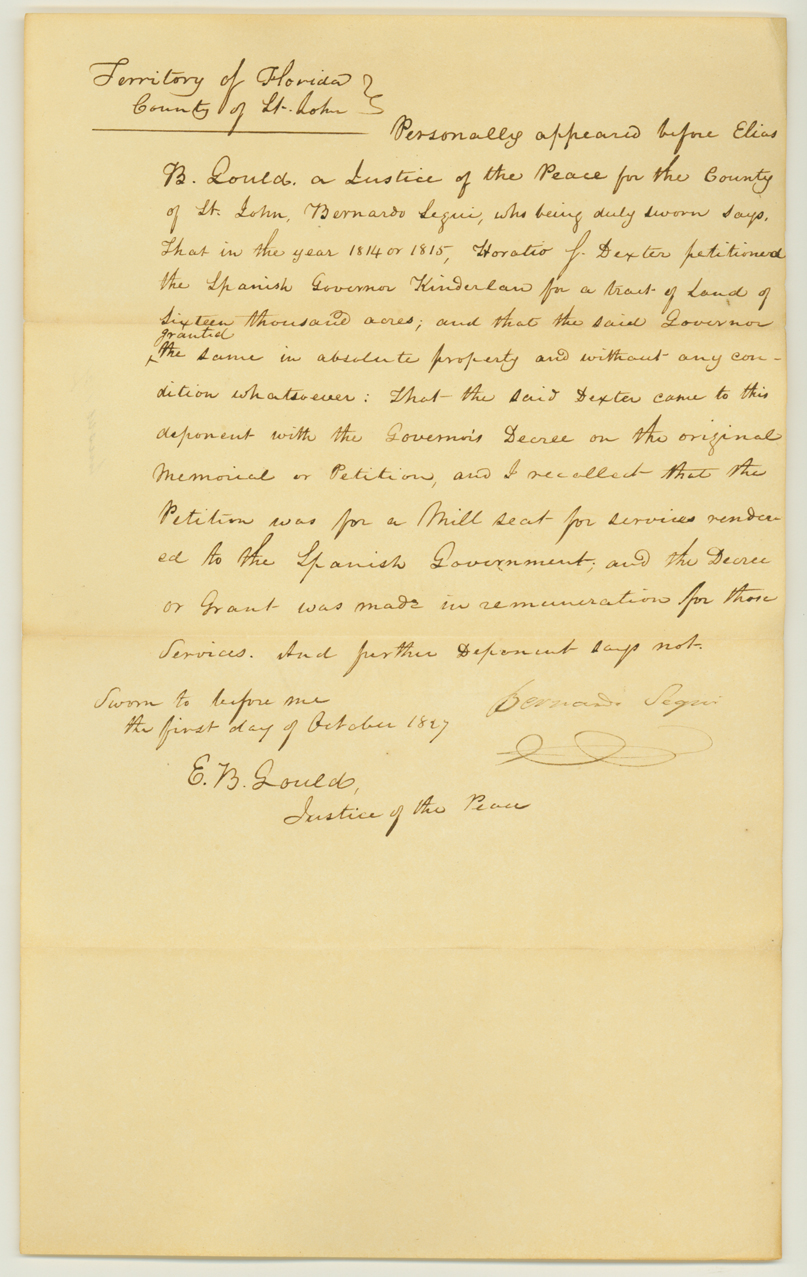 Territory of Florida }
County of St. John
Personally appeared before Elias
B. Gould. a Justice of the Peace for the County
of St. John, Bernardo Segui, who being duly sworn says,
That in the year 1814 or 1815, Horatio S. Dexter petitioned
the Spanish Governor Kinderlan for a tract of Land of
Sixteen thousand acres; and that the said Governor
granted
^the same in absolute property and without any con-
dition whatsoever: That the said Dexter came to this
deponent with the Governor's Decree on the original
Memorial or Petition, and I recollect that the
Petition was for a Mill seat for services render-
ed to the Spanish Government; and the Decree
or Grant was made in remuneration for those
Services. And further Deponent says not.
Sworn to before me
Bernardo Segui
the first day of October 1827
E. B. Gould,
Justice of the Peace